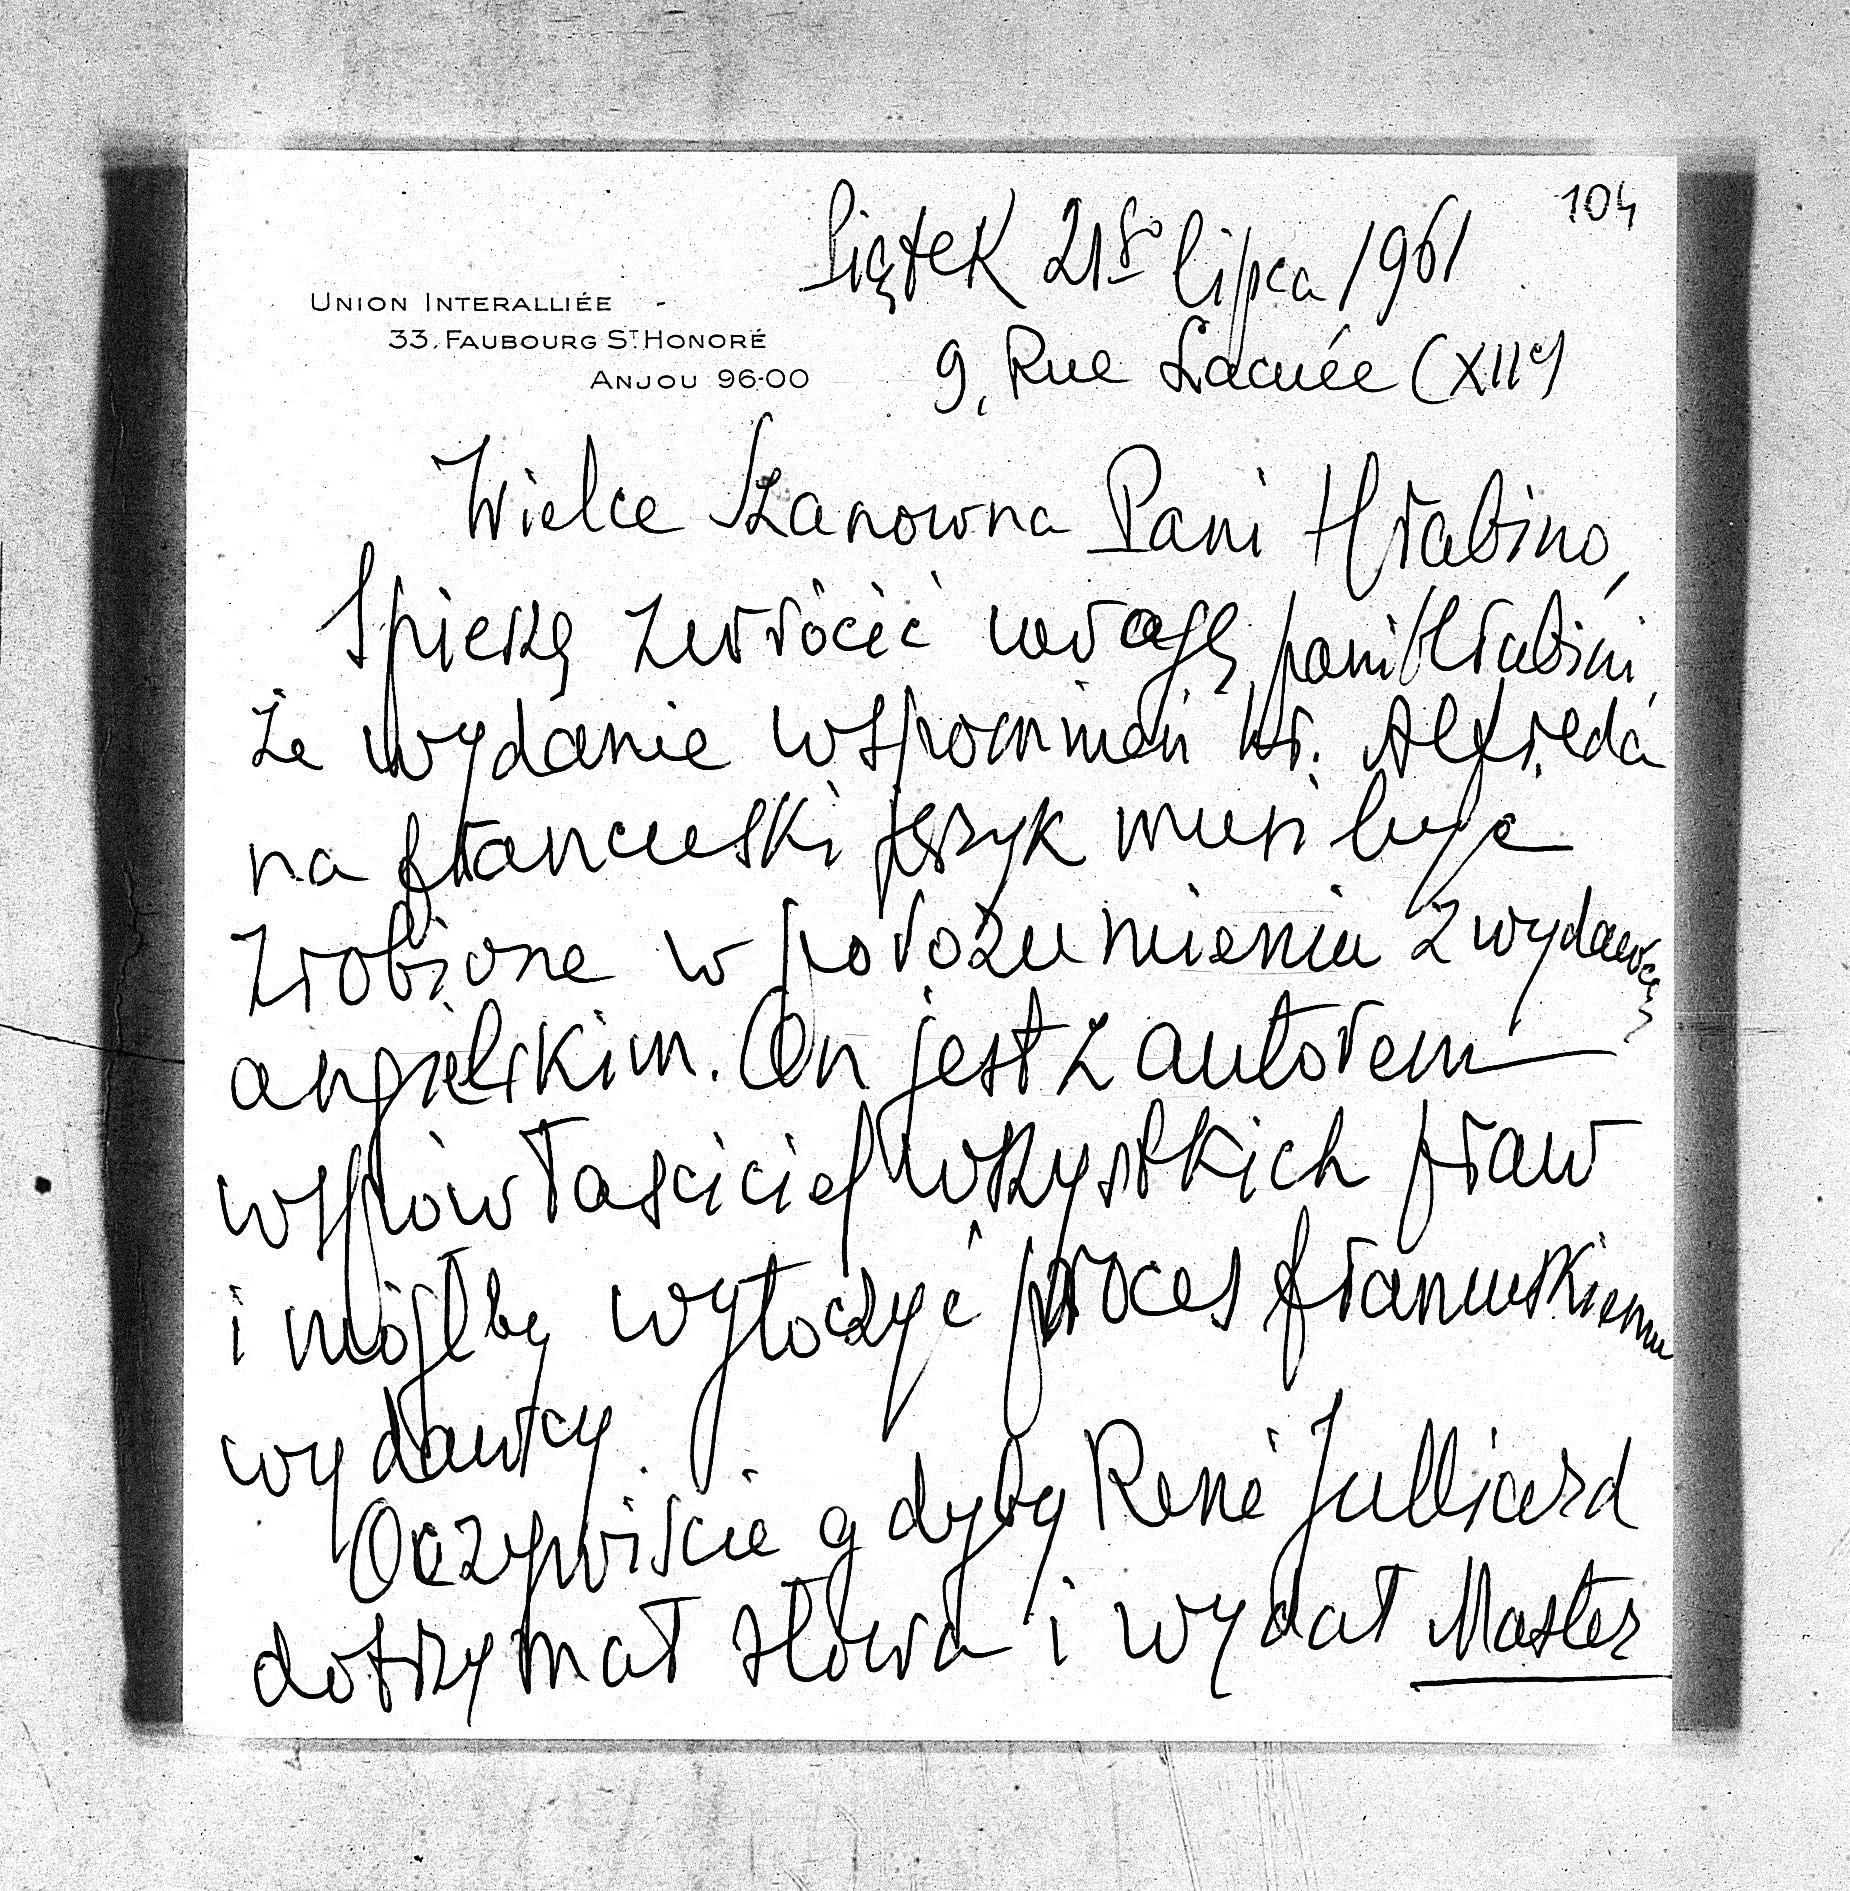 104
Piątek 21go lipca 1961
UNION INTERALLIÉE
33, FAUBOURG ST. HONORÉ
ANJOU 96-00
9, Rue Lacuée (XIIe)
Wielce Szanowna Pani Hrabino,
Spieszę zwrócić uwagę pani Hrabini,
że wydanie wspomnień hr. Alfreda
na francuski język musi być
zrobione w porozumieniu z wydawcą
angielskim. On jest z autorem
współwłaściciel wszystkich praw
i mógłby wytoczyć proces francuskiemu
wydawcy.
Oczywiście gdyby René Julliard
dotrzymał słowa i wydał Master